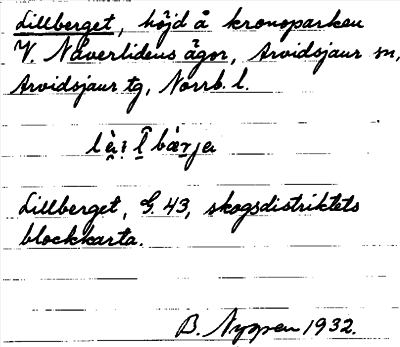 Lillberget, höjd å kronoparken
V. Nåverlidens ägor, Arvidsjaur sn,
Arvidsjaur tg, Norrb. l.
Lillberget, G. 43, skogsdistriktets
blockkarta.
B. Nyman 1932.